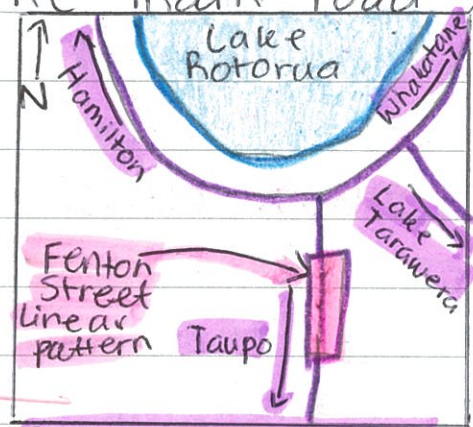 main road
N
Lake
Rotorua
Hamilton
Whakatane
Lake
Tarawera
Fenton
Street
Linear
pattern
Taupo